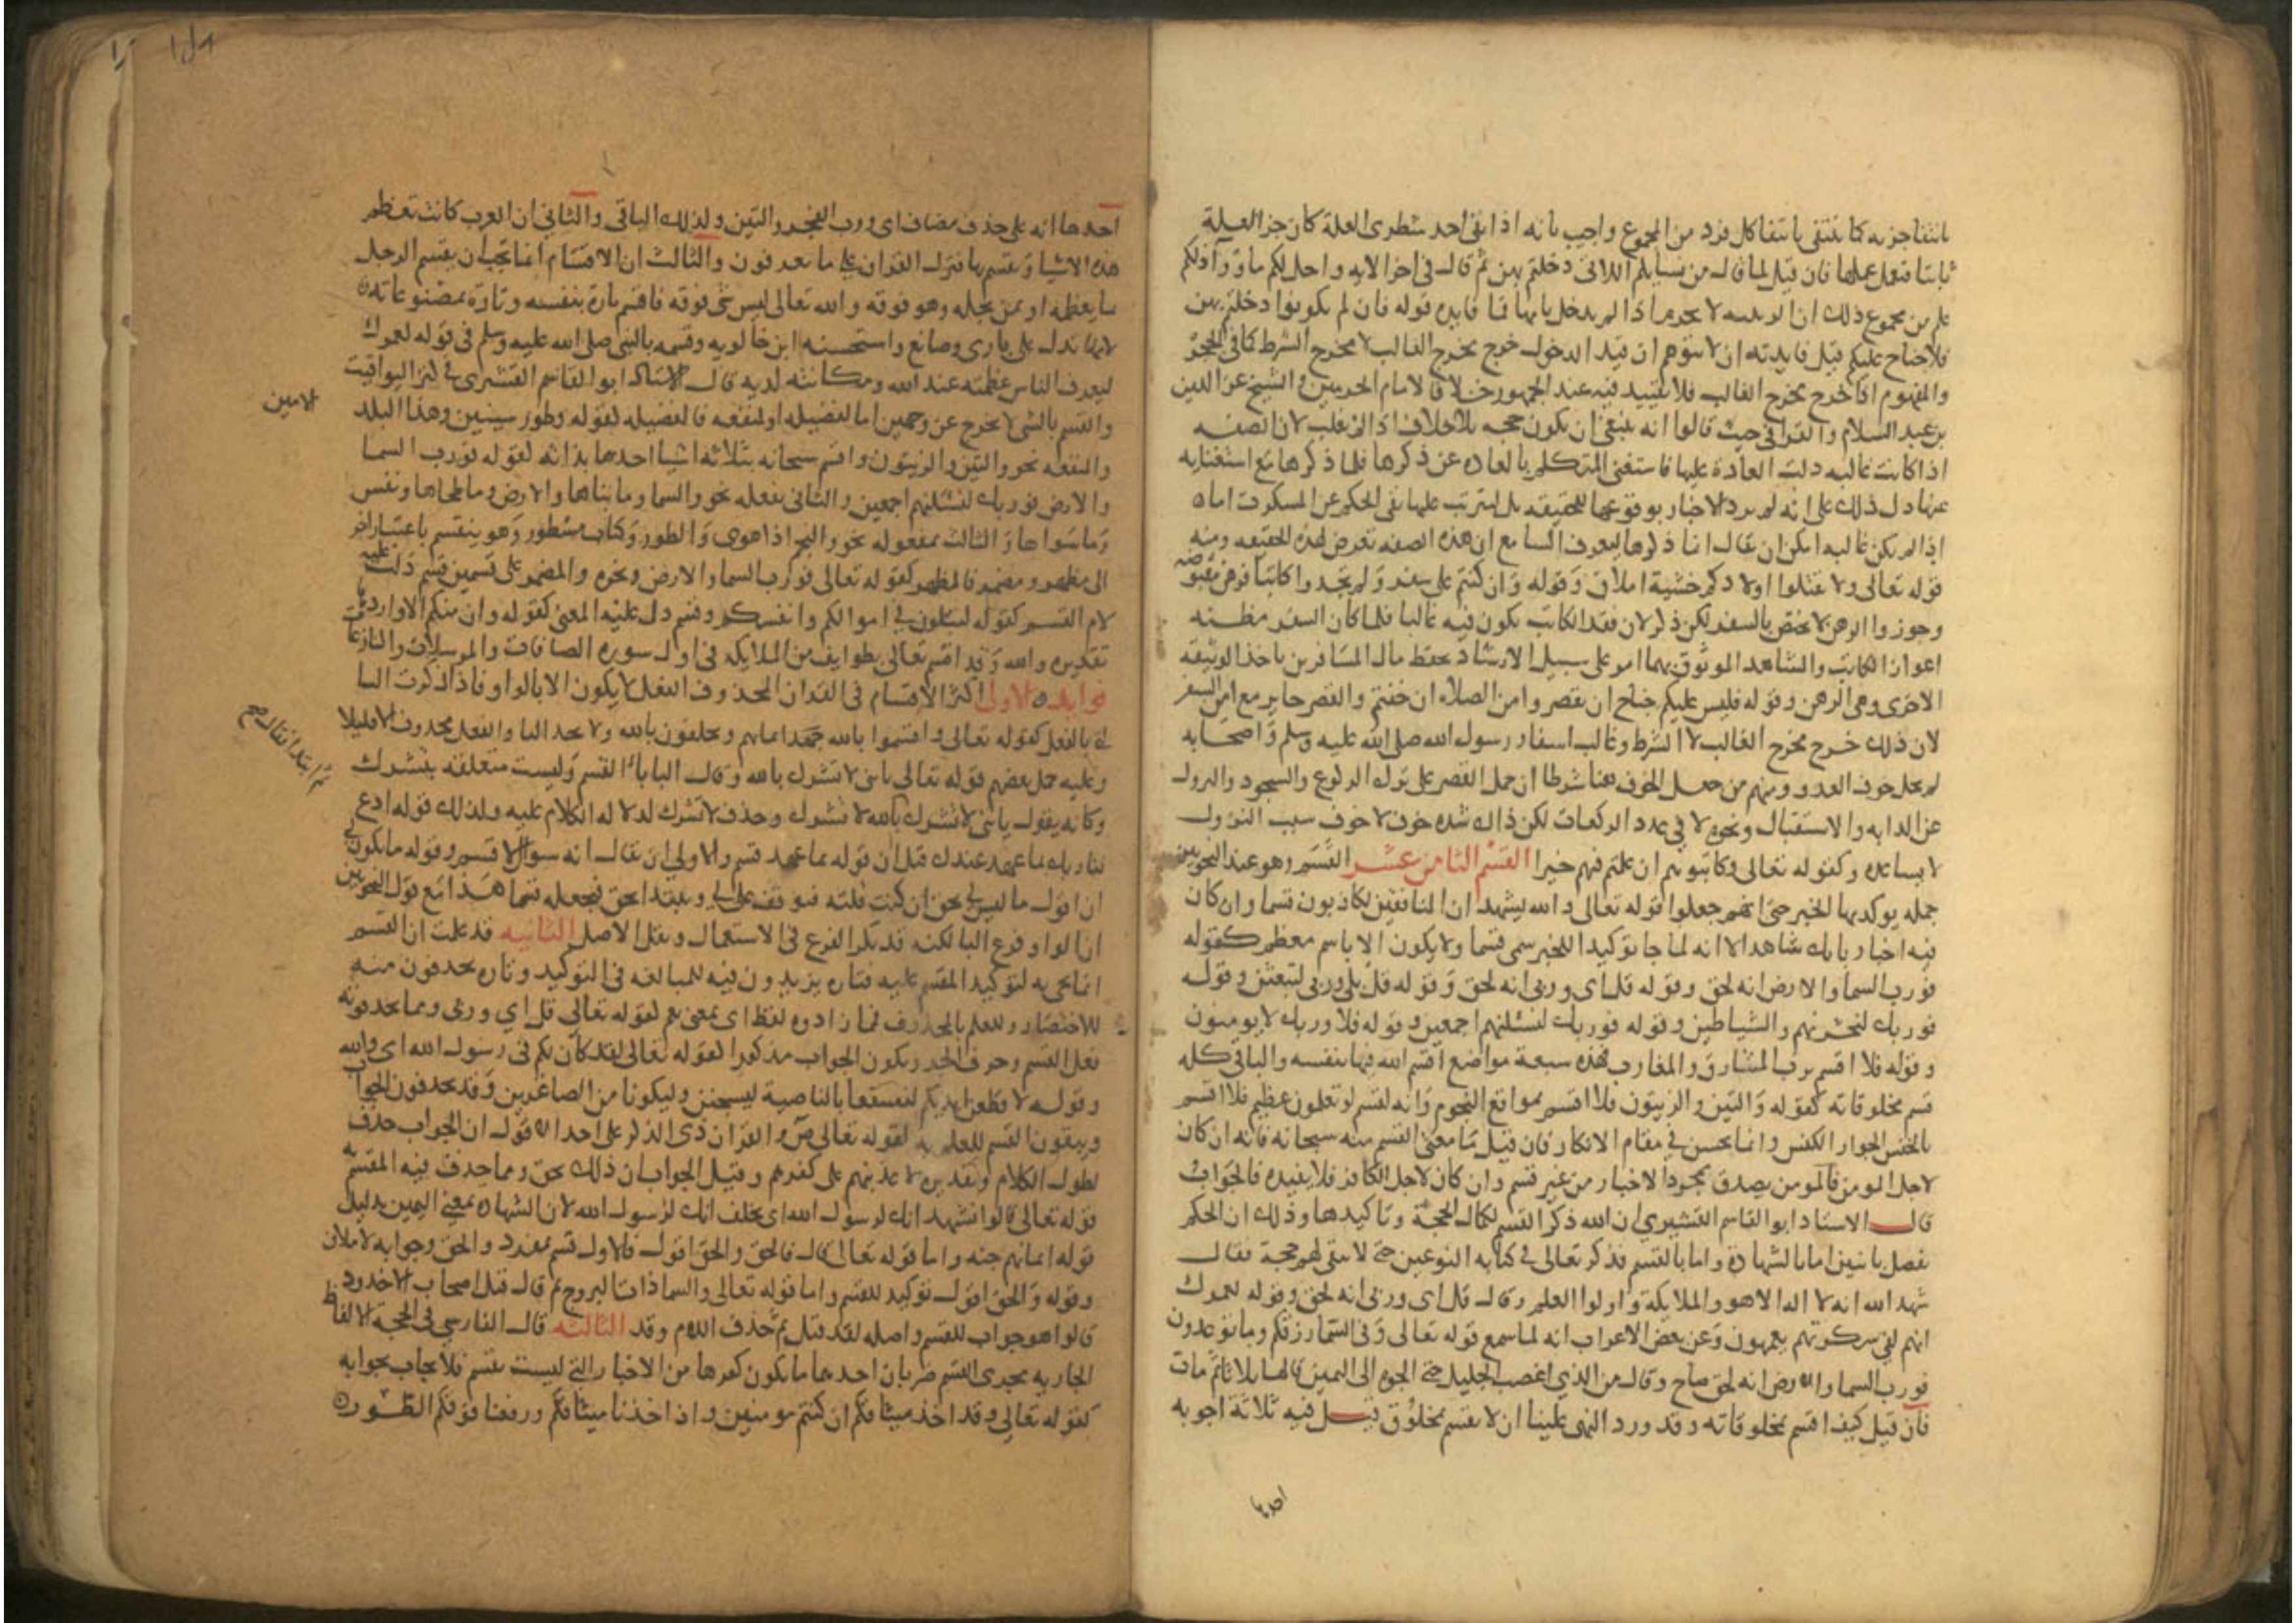 بانتفا جزيه كما ينتفي بانتفا كل فرد من المجموع واجيب بانه اذا نفى احد شطرى العلة كان جز العلة
ثابتا فيعمل عملها فان قيل لما قال من نسايكم اللاتى دخلتم بهن ثم قال فى اخر الايه واحل لكم ما ورآ ذلكم
علم من مجموع ذلك ان الربيبه لا تحرم اذا لم يدخل بامها فما فايده قوله فان لم تكونوا دخلتم بهن
فلا جناح عليكم قيل فايدته ان لا يتوهم ان قيد الدخول خرج مخرج الغالب لا مخرج الشرط كما فى الحجر
والمفهوم اذا خرج مخرج الغالب فلا تقييد فيه عند الجمهور خلافا لامام الحرمين والشيخ عز الدين
بن عبد السلام والقرافى حيث قالوا انه ينبغى ان يكون حجه بلا خلاف اذا لم يغلب لان الصفه
اذا كانت غالبه دلت العادة عليها فاستغنى المتكلم بالعاده عن ذكرها فلما ذكرها مع استغنايه
عنها دل ذلك على انه لم يرد الاخبار بوقوعها للحقيقه بل ليترتب عليها نفى الحكم عن المسكوت اما
اذا لم يكن غالبه امكن ان يقال انما ذكرها ليعرف السامع ان هذه الصفه تعرض لهذه الحقيقه ومنه
قوله تعالى ولا تقتلوا اولادكم خشية املاق وقوله وان كنتم على سفر ولم تجدوا كاتبا فرهن مقبوضه
وجوزوا الرهن لا يختص بالسفر لكن ذكر لان فقد الكاتب يكون فيه غالبا فلما كان السفر مظنه
اعواز الكاتب والشاهد الموثوق بهما امر على سبيل الارشاد بحفظ مال المسافرين باخذ الوثيقه
الاخرى وهى الرهن وقوله فليس عليكم جناح ان تقصروا من الصلاه ان خفتم والقصر جايز مع امن السفر
لان ذلك خرج مخرج الغالب لا الشرط وغالب اسفار رسول الله صلى الله عليه وسلم واصحابه
لم تخل خوف العدو ومنهم من جعل الخوف هنا شرطا ان حمل القصر على ترك الركوع والسجود والنزول
عن الدابه والاستقبال ونحوه لا فى عدد الركعات لكن ذلك شده خوف لا خوف سبب النزول
لا يساعده وكقوله تعالى فكاتبوهم ان علمتم فيهم خيرا القسم الثامن عشر القسم وهو عند النحويين
جمله يوكد بها الخبر حتى انهم جعلوا قوله تعالى والله يشهد ان المنافقين لكاذبون قسما وان كان
فيه اخبار بانك شاهد الا انه لما جا توكيدا للخبر سمى قسما ولا يكون الا باسم معظم كقوله
فورب السما والارض انه لحق وقوله قل اى وربى انه لحق وقوله قل بلى وربى لتبعثن وقوله
فوربك لنحشرنهم والشياطين وقوله فوربك لنسئلنهم اجمعين وقوله فلا وربك لا يومنون
وقوله فلا اقسم برب المشارق والمغارب فهذه سبعة مواضع اقسم الله فيها بنفسه والباقى كله
قسم بمخلوقاته كقوله والتين والزيتون فلا اقسم بمواقع النجوم وانه لقسم لو تعلمون عظيم فلا اقسم
بالخنس الجوار الكنس وانما يحسن فى مقام الانكار فان قيل ما معنى القسم منه سبحانه فانه ان كان
لاجل المومن فالمومن يصدق بمجرد الاخبار من غير قسم وان كان لاجل الكافر فلا يفيده فالجواب
قال الاستاد ابو القاسم القشيري ان الله ذكر القسم لكمال الحجة وتاكيدها وذلك ان الحكم
يفصل باثنين اما بالشهادة واما بالقسم فذكر تعالى فى كتابه النوعين حتى لا يبقى لهم حجة فقال
شهد الله انه لا اله الا هو والملايكة واولوا العلم وقال قل اى وربى انه لحق وقوله لعمرك
انهم لفى سكرتهم يعمهون وعن بعض الاعراب انه لما سمع قوله تعالى وفى السماء رزقكم وما توعدون
فورب السما والارض انه لحق صاح وقال من الذي اغضب الجليل حتى الجوه الى اليمين قالها ثلاثا ثم مات
فان قيل كيف اقسم بمخلوقاته وقد ورد النهى علينا ان لا نقسم بمخلوق قيل فيه ثلاثة اجوبه
احدها
احدها انه على حذف مضاف اى ورب الفجر والتين وكذلك الباقى والثانى ان العرب كانت تعظم
هذه الاشيا وتقسم بها فنزل القرآن على ما يعرفون والثالث ان الاقسام انما تجب ان يقسم الرجل
بما يعظمه او بمن يجله وهو فوقه والله تعالى ليس شى فوقه فاقسم تارة بنفسه وتارة بمصنوعاته
لانها تدل على بارى وصانع واستحسنه ابن خالويه وقسمه بالنبى صلى الله عليه وسلم فى قوله لعمرك
ليعرف الناس عظمته عند الله ومكانته لديه قال الاستاذ ابو القاسم القشيرى فى كنز اليواقيت
والقسم بالشى لا يخرج عن وجهين اما لفضيله او لمنفعه فالفضيله كقوله وطور سينين وهذا البلد
الامين
والمنفعه نحو والتين والزيتون واقسم سبحانه بثلاثه اشيا احدها بذاته كقوله فورب السما
والارض فوربك لنسئلنهم اجمعين والثانى بفعله نحو والسما وما بناها والارض وما طحاها ونفس
وما سواها والثالث بمفعوله نحو والنجم اذا هوى والطور وكتاب مسطور وهو ينقسم باعتبار اخر
الى مظهر ومضمر فالمظهر كقوله تعالى فورب السما والارض ونحوه والمضمر على قسمين قسم دلت عليه
لام القسم كقوله لتبلون فى اموالكم وانفسكم وقسم دل عليه المعنى كقوله وان منكم الا واردها
تقديره والله وقد اقسم تعالى بطوايف من الملايكه فى اول سوره الصافات والمرسلات والنازعات
فوايد الاولى اكثر الاقسام فى القران المحذوف الفعل لا يكون الا بالواو فاذا ذكرت البا
اتى بالفعل كقوله تعالى واقسموا بالله جهد ايمانهم ويحلفون بالله ولا تجد البا والفعل محذوف الا قليلا
وعليه حمل بعضهم قوله تعالى يا بنى لا تشرك بالله وقال الباء باء القسم وليست متعلقه بتشرك
ثم ابتدا فقال
وكانه يقول يا بنى لا تشرك بالله لا تشرك وحذف لا تشرك لدلاله الكلام عليه وكذلك قوله ادع
لنا ربك بما عهد عندك قيل ان قوله بما عهد قسم والاولى ان يقال انه سوال لا قسم وقوله ما يكون لى
ان اقول ما ليس لى بحق ان كنت قلته فتوقف على لى ويبتدا بحق فيجعله قسما هذا مع قول النحويين
ان الواو فرع البا لكنه قد يكثر الفرع فى الاستعمال ويقل الاصل الثانيه قد علمت ان القسم
انما يجى به لتوكيد المقسم عليه فتاره يزيدون فيه للمبالغه فى التوكيد وتاره يحذفون منه
للاختصار وللعلم بالمحذوف فما زادوه لفظ اى بمعنى نعم كقوله تعالى قل اي وربى ومما يحذفونه
فعل القسم وحرف الجر ويكون الجواب مذكورا كقوله تعالى لقد كان لكم فى رسول الله اى والله
وقوله لاقطعن ايديكم لنسفعا بالناصية ليسجنن وليكونا من الصاغرين وقد يحذفون الجواب
ويبقون القسم للعلم به كقوله تعالى ص والقران ذى الذكر على احد الاقوال ان الجواب حذف
لطول الكلام وتقديره لاعذبنهم على كفرهم وقيل الجواب ان ذلك لحق ومما حذف فيه المقسم به
قوله تعالى قالوا نشهد انك لرسول الله اى نحلف انك لرسول الله لان الشهاده بمعنى اليمين بدليل
قوله ايمانهم جنه واما قوله تعالى قال فالحق والحق اقول فالاول قسم بمفرد والحق وجوابه لاملان
وقوله والحق اقول توكيد للقسم واما قوله تعالى والسما ذات البروج ثم قال قتل اصحاب الاخدود
قالوا هو جواب للقسم واصله لقد قتل ثم حذف اللام وقد الثالثه قال الفارسى فى الحجة الالفاظ
الجاريه مجرى القسم ضربان احدهما ما يكون كغيرها من الاخبار التى ليست بقسم فلا يجاب بجوابه
كقوله تعالى وقد اخذ ميثاقكم ان كنتم مومنين واذ اخذنا ميثاقكم ورفعنا فوقكم الطور